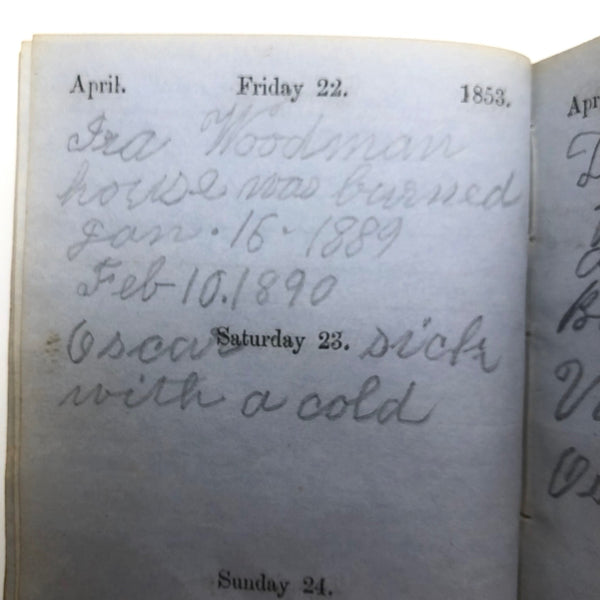 April. Friday 22. 1853.
Ira Woodman
house was burned
Jan. 16. 1889
Feb 10. 1890
Oscar sick
Saturday 23.
with a cold
Sunday 24.
Apr